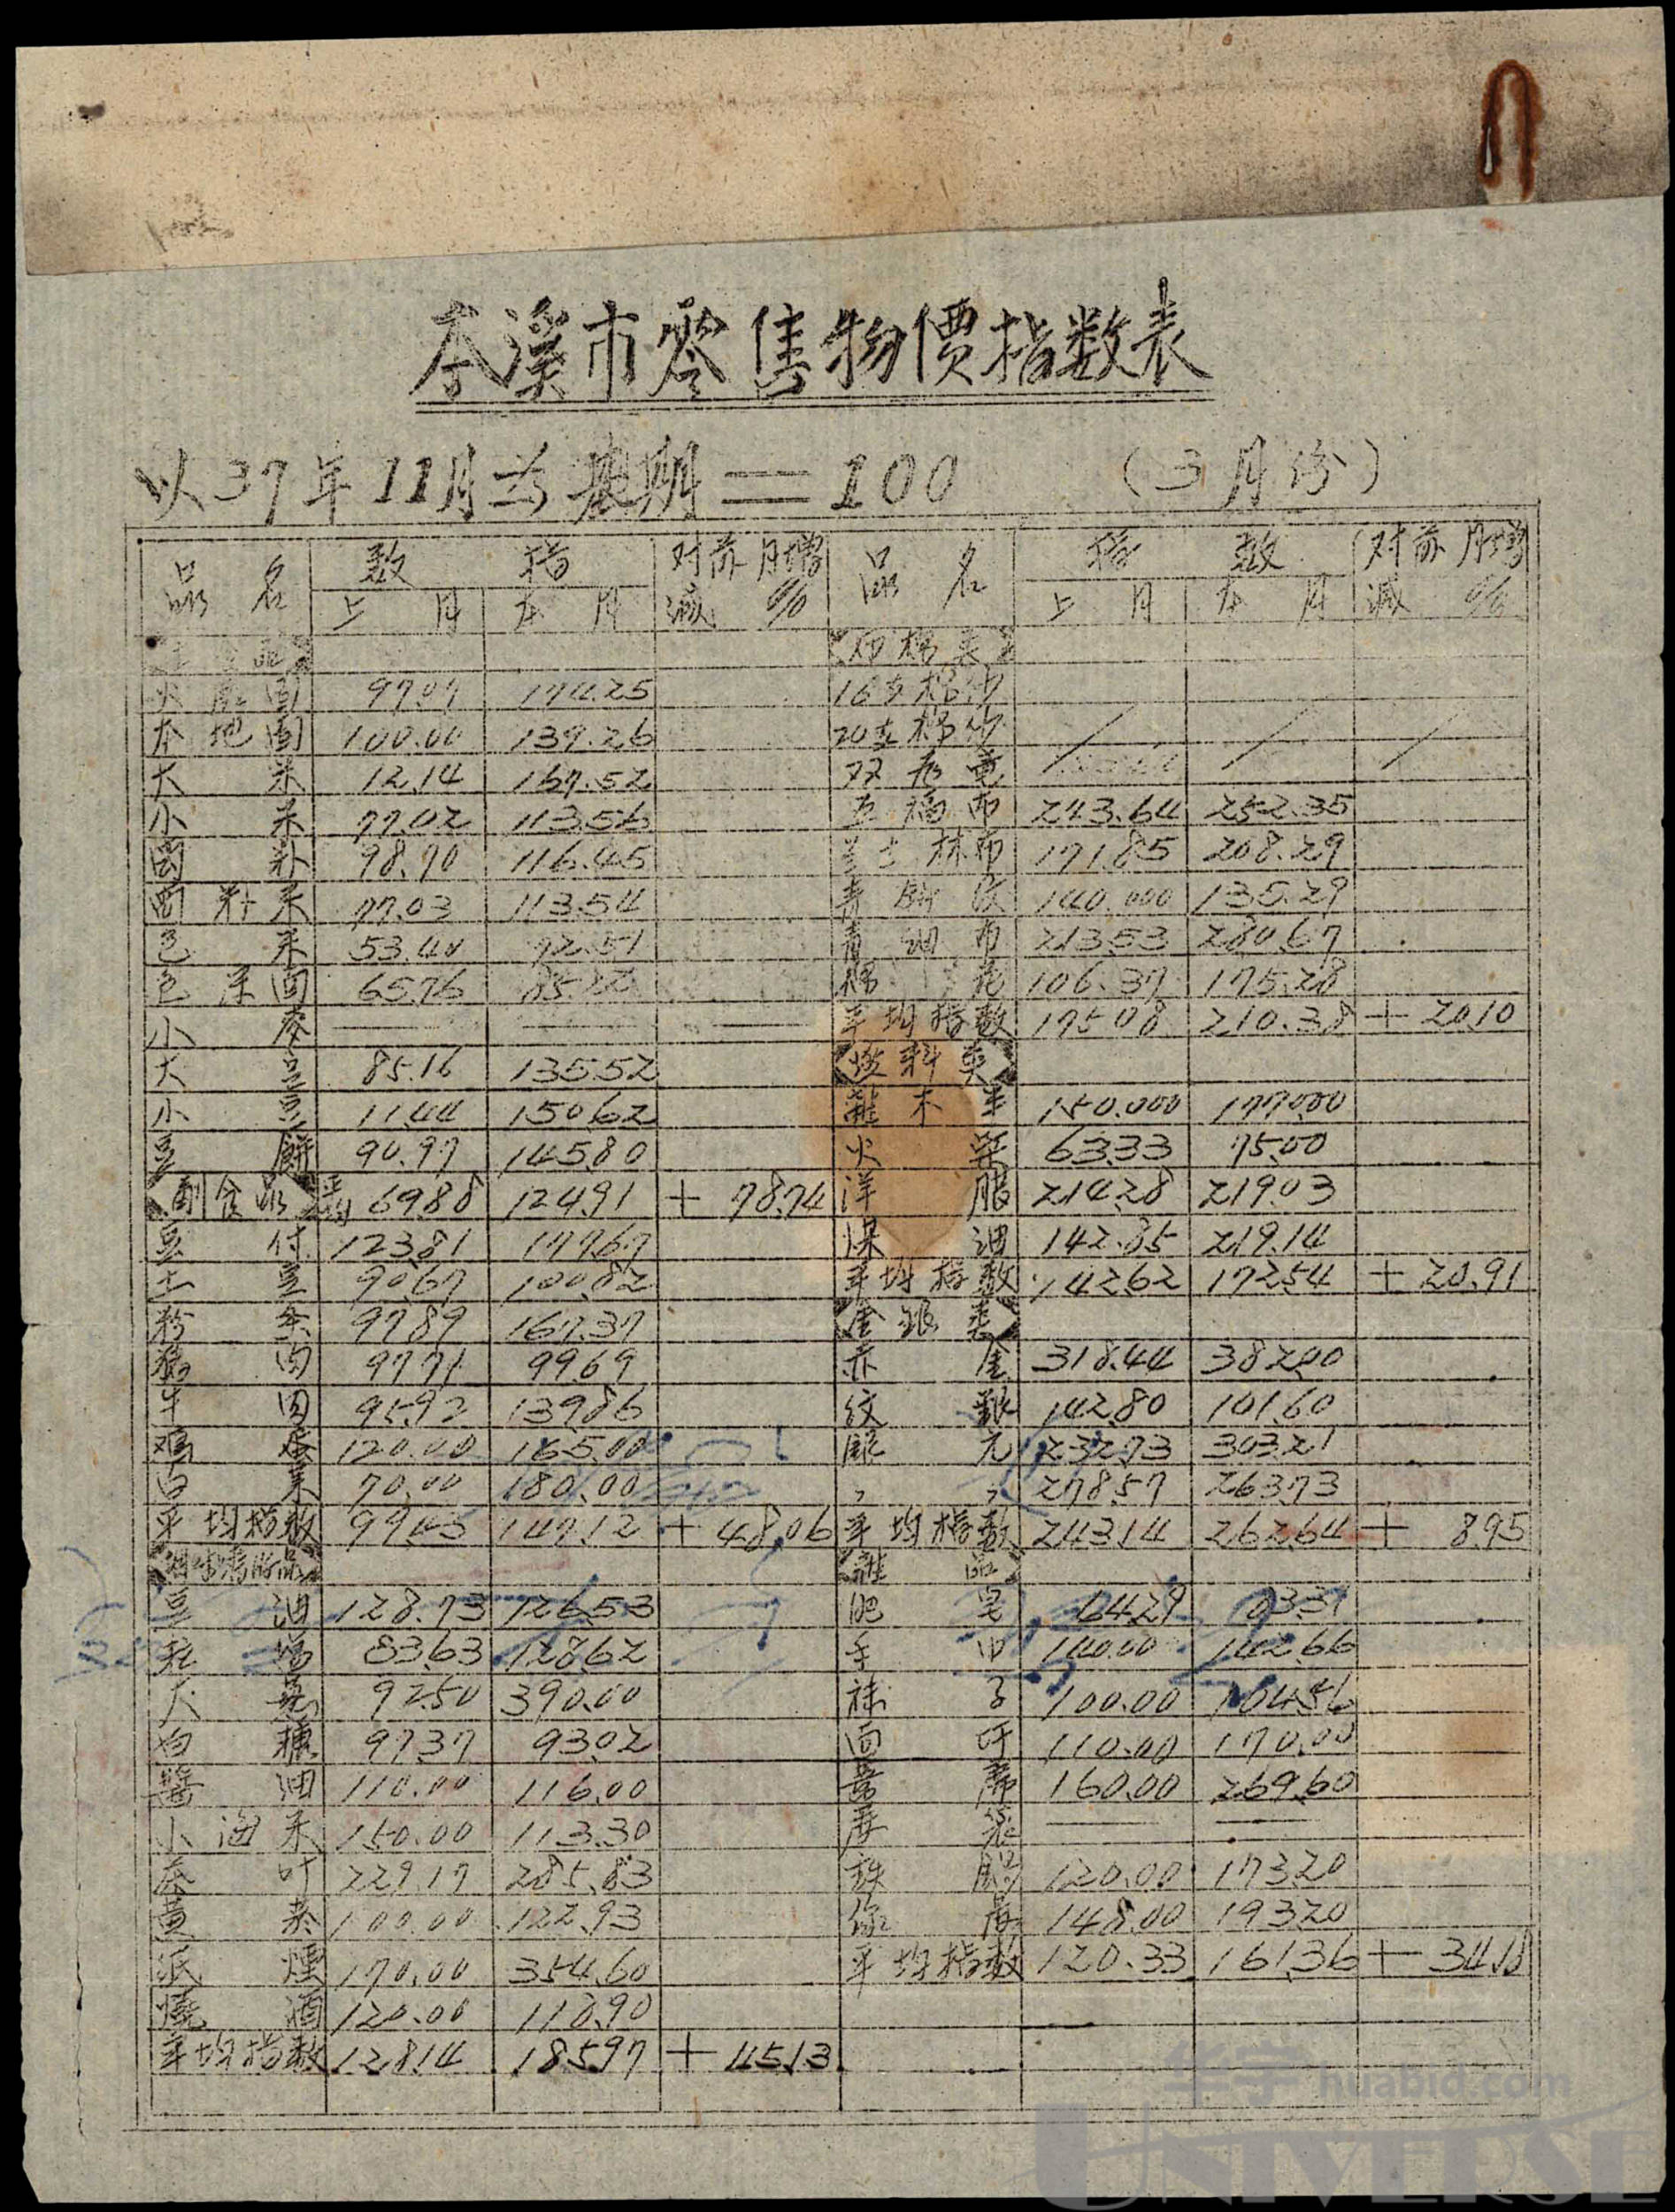 本溪市零售物價指数表
以37年11月为基期＝100 （3月份）
品名 数指 对前月增减% 品名 指数 对前月增减%
上月 本月 上月 本月
主食品 布棉类
火磨面 97.07 174.25 16支棉沙
本地面 100.00 139.26 20支棉沙 / / /
大米 12.14 167.52 双
小米 77.02 113.56 五福布 243.64 252.35
98.70 116.45 士林布 171.85 208.29
77.03 113.54 青 140.000 135.29
包米 53.40 92.51 青细布 213.53 280.67
包米面 65.76 85.22 棉花 106.37 175.28
小麦 — — — 平均指数 175.08 210.38 + 20.10
大豆 85.16 135.52 燃料类
小豆 11.44 150.62 木半 150.000 177.000
豆餅 90.97 145.80 火柴 63.33 75.00
副食品 平均 69.88 124.91 + 78.74 洋腊 214.28 219.03
豆付 123.81 177.67 煤油 142.85 219.14
土豆 90.67 100.82 平均指数 142.62 172.54 + 20.91
粉条 97.89 167.37 金銀类
猪肉 97.71 99.69 赤金 318.44 382.00
牛肉 95.92 139.86 紋銀 142.80 101.60
鸡蛋 120.00 165.00 銀元 232.73 303.21
白菜 70.00 180.00 〃 〃 278.57 263.73
平均指数 99.43 147.12 + 48.06 平均指数 243.14 262.64 + 8.95
雜品
豆油 128.73 126.53 肥皂 64.29 03.31
83.63 128.62 手巾 140.00 142.66
大 92.50 390.00 袜子 100.00 104.56
白糖 97.37 93.02 110.00 170.00
醬油 110.00 116.00 160.00 269.60
小 150.00 113.30 — —
叶 229.17 285.83 120.00 173.20
黄 100.00 122.93 148.00 193.20
紙煙 170.00 354.60 平均指数 120.33 161.36 + 34.18
燒酒 120.00 118.90
平均指数 128.14 185.97 + 45.13
华宇 huabid.com
UNIVERSE